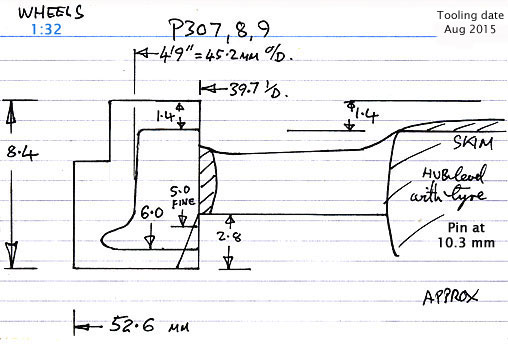 WHEELS
1:32
P307,8,9
Tooling date
Aug 2015
4'9" = 45.2 MM O/D.
39.7 I/D.
1.4
1.4
8.4
SKIM
HUB level
with tyre
5.0
FINE
6.0
2.8
Pin at
10.3 mm
APPROX
52.6 MM